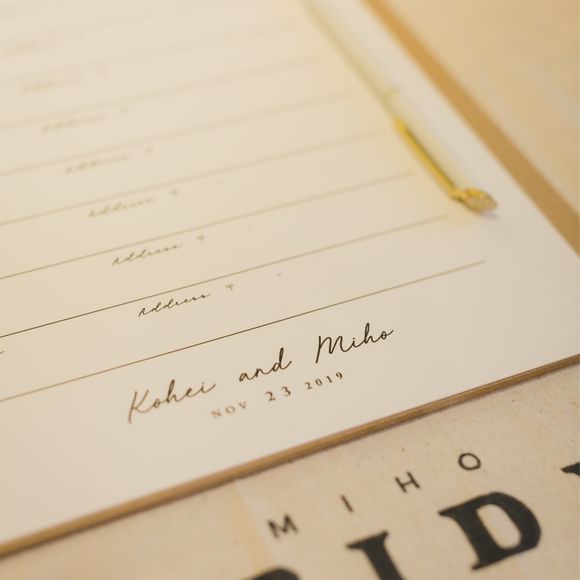 Address 〒
Address 〒
Address 〒
Address 〒
Address 〒
Kohei and Miho
NOV 23 2019
MIHO